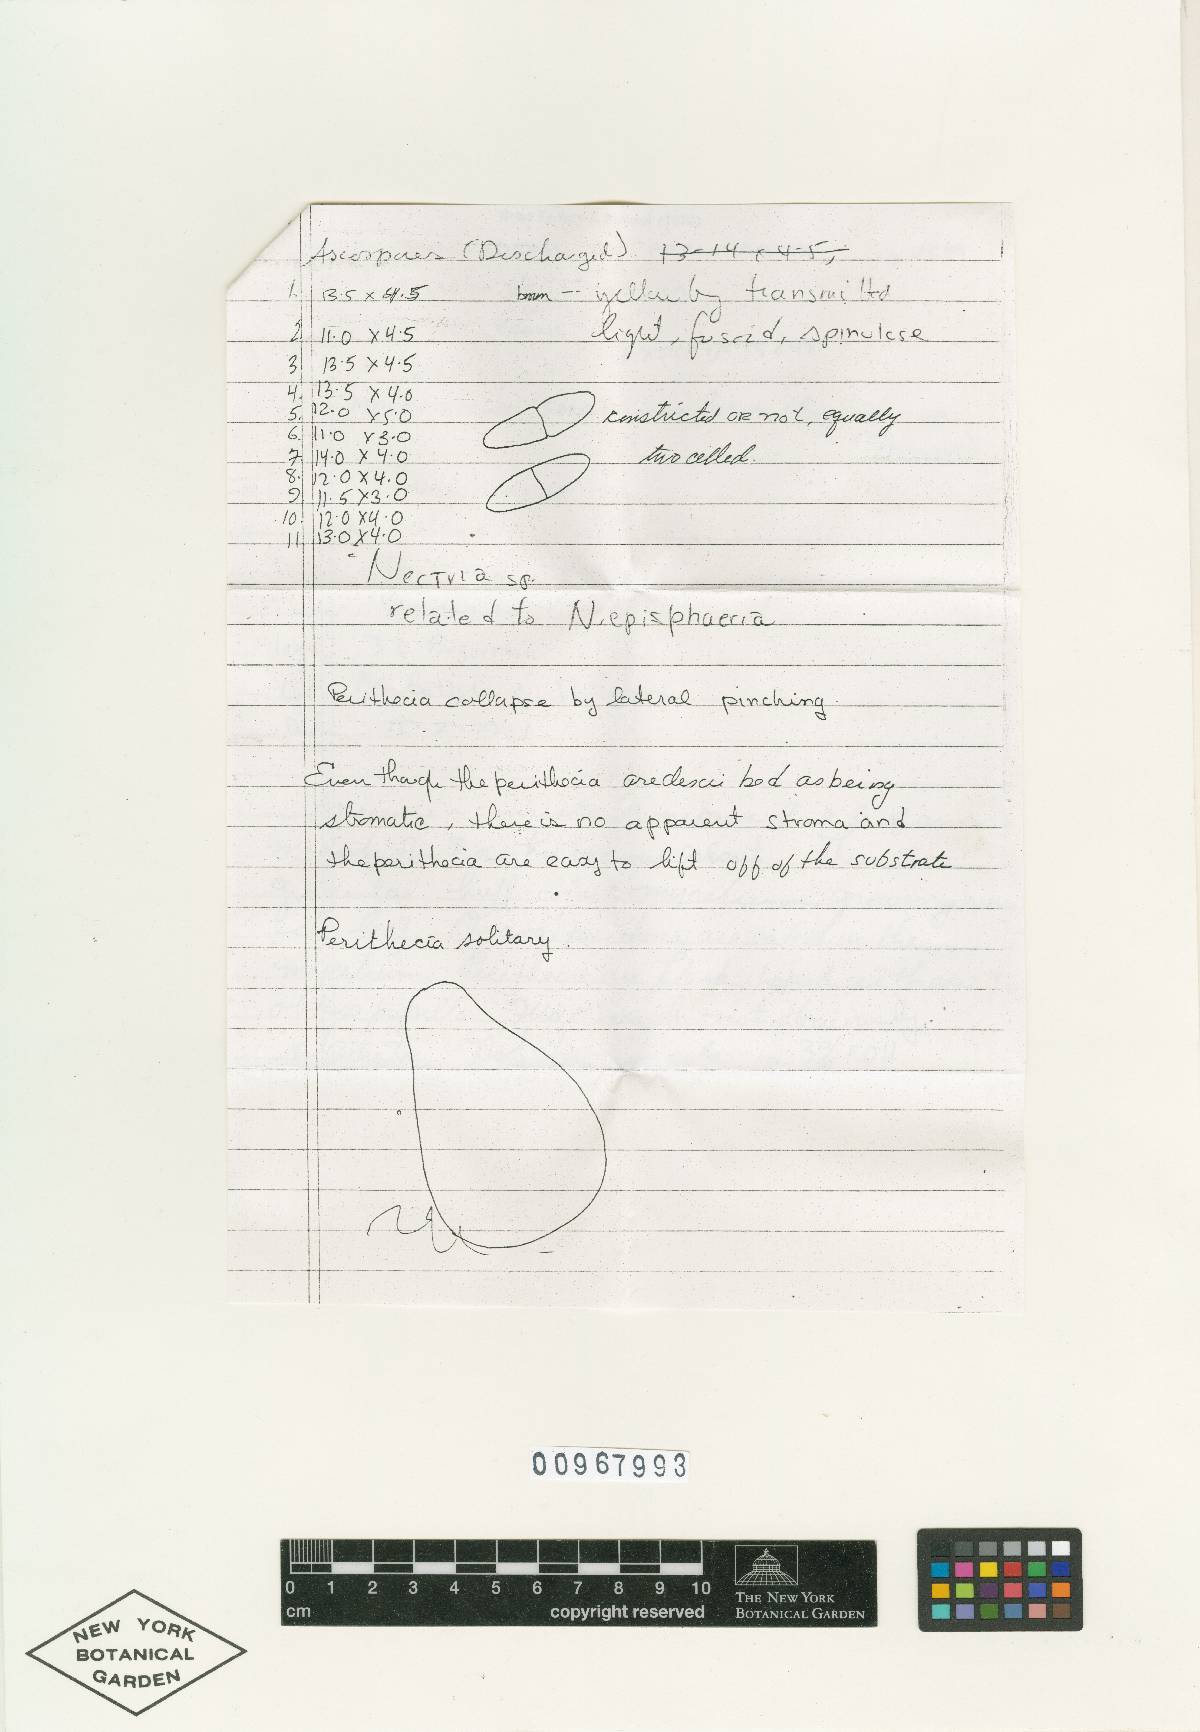 Ascospores (Discharged) 13-14 x 4-5,
1. 13.5 x 4.5 brown — yellow by transmitted
2 11.0 x 4.5 light, fusoid, spinulose
3 13.5 x 4.5
4. 13.5 x 4.0
5. 12.0 x 5.0 constricted or not, equally
6. 11.0 x 3.0
7. 14.0 x 4.0 two celled.
8. 12.0 x 4.0
9. 11.5 x 3.0
10. 12.0 x 4.0
11. 13.0 x 4.0
Nectria sp.
related to N. episphaeria
Perithecia collapse by lateral pinching.
Even though the perithecia are described as being
stromatic, there is no apparent stroma and
the perithecia are easy to lift off of the substrate
Perithecia solitary.
00967993
0 1 2 3 4 5 6 7 8 9 10
cm copyright reserved
THE NEW YORK
BOTANICAL GARDEN
NEW YORK
BOTANICAL
GARDEN